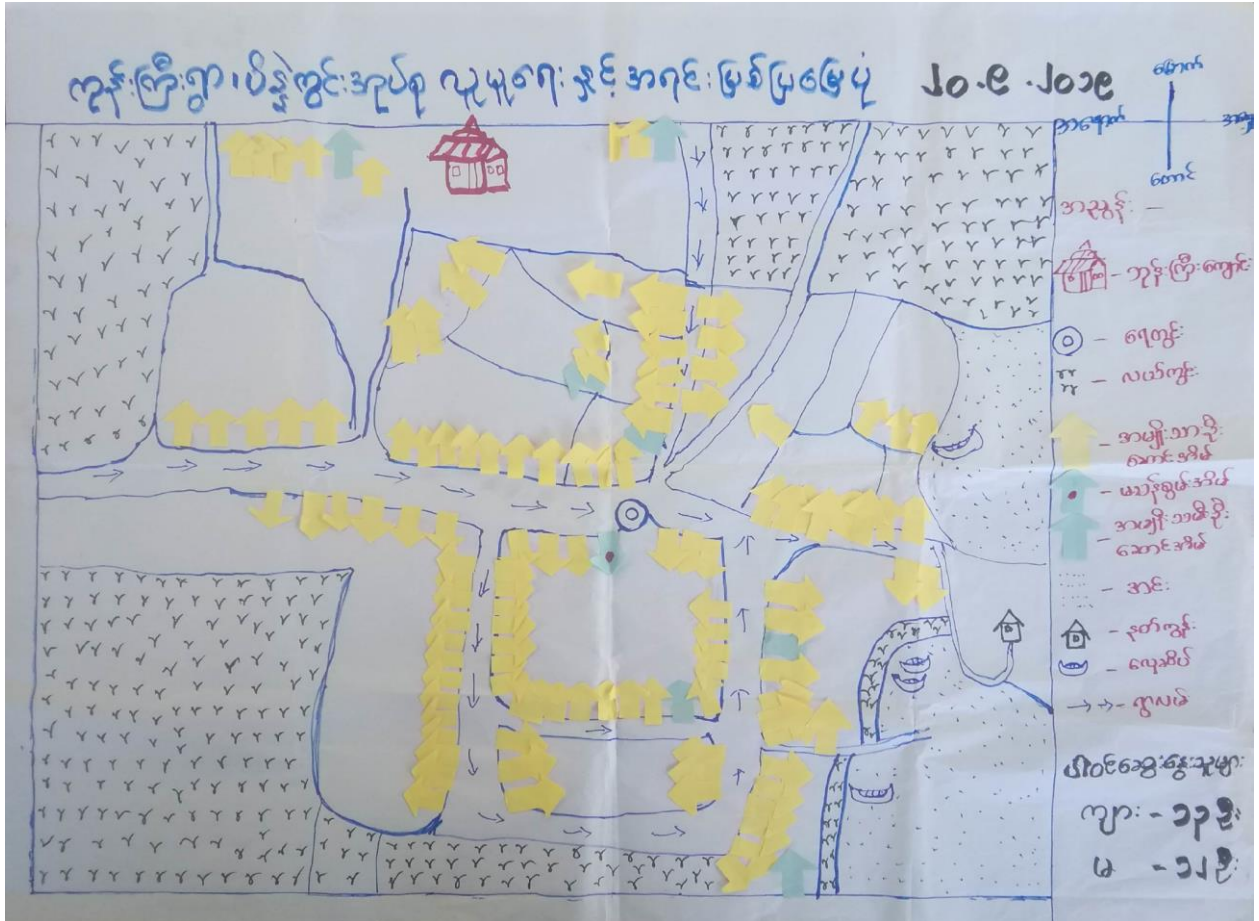 ကုန်းကြီးရွာ၊ပိန္နဲကွင်းအုပ်စု လူမှုရေး နှင့် အရင်းမြစ်ပြမြေပုံ ၂၀.၉.၂၀၁၉
မြောက်
အနောက်
တောင်
အညွှန်း -
- ဘုန်းကြီးကျောင်း
- ရေတွင်း
- လယ်ကွင်း
- အမျိုးသားဦး
ဆောင်အိမ်
- မသန်စွမ်းအိမ်
- အမျိုးသမီးဦး
ဆောင်အိမ်
- အင်း
- နတ်ကွန်း
- လှေဆိပ်
- ရွာလမ်း
ပါဝင်ဆွေးနွေးသူများ
ကျား - ၁၃ဦး
မ - ၁၂ဦး